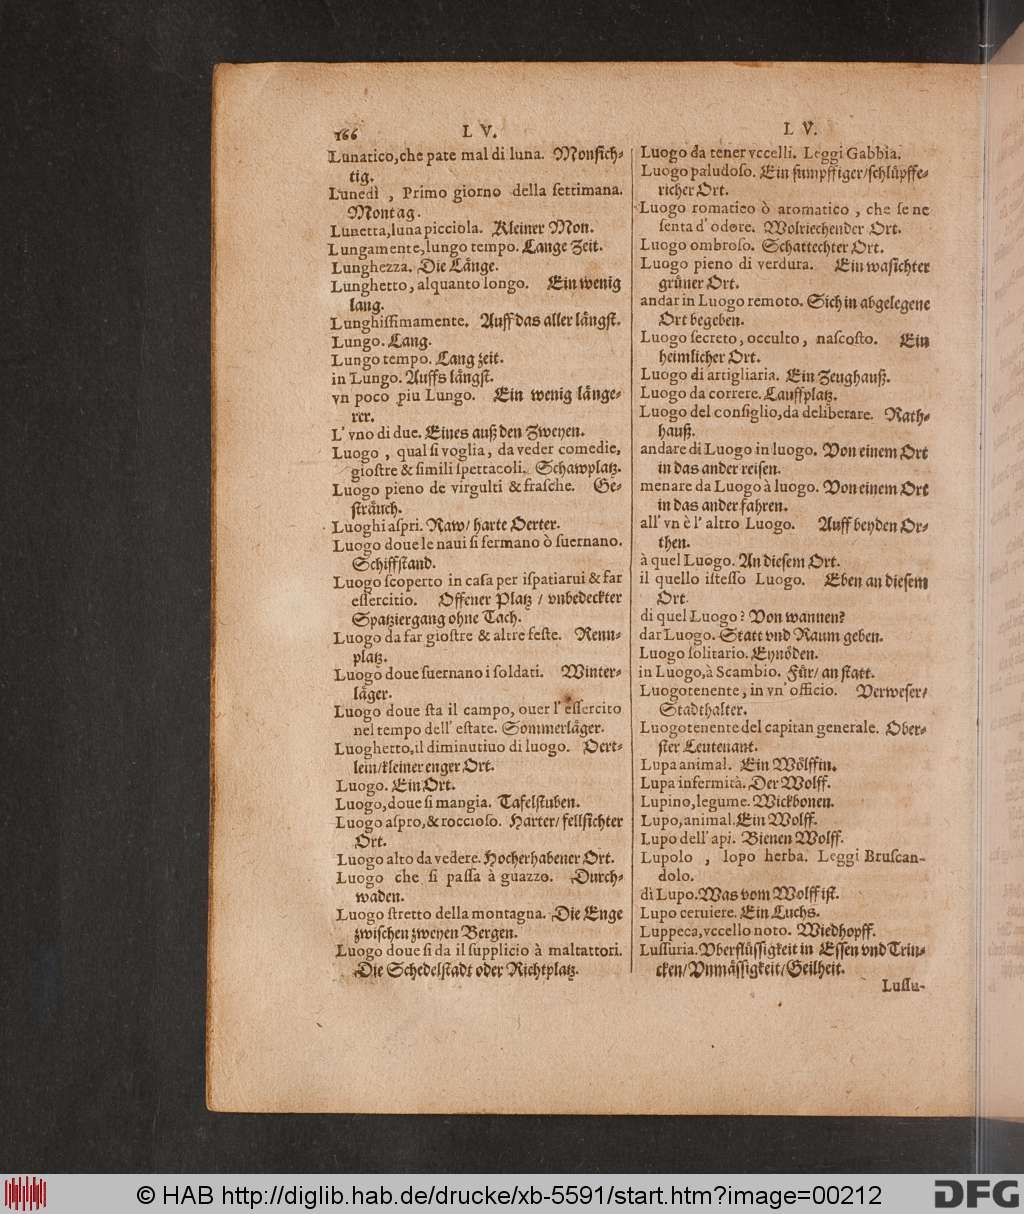 166
L V.
Lunatico,che pate mal di luna. Monſich-
tig.
Lunedì , Primo giorno della ſettimana.
Montag.
Lunetta,luna picciola. Kleiner Mon.
Lungamente,lungo tempo. Lange Zeit.
Lunghezza. Die Laͤnge.
Lunghetto, alquanto longo. Ein wenig
lang.
Lunghiſſimamente. Auff das aller laͤngſt.
Lungo. Lang.
Lungo tempo. Lang zeit.
in Lungo. Auffs laͤngſt.
vn poco piu Lungo. Ein wenig laͤnge-
rer.
L' vno di due. Eines auß den Zweyen.
Luogo , qual ſi voglia, da veder comedie,
gioſtre & ſimili ſpettacoli. Schawplatz.
Luogo pieno de virgulti & fraſche. Ge-
ſtraͤuch.
Luoghi aſpri. Raw/ harte Oerter.
Luogo doue le naui ſi fermano ò ſuernano.
Schiffſtand.
Luogo ſcoperto in caſa per iſpatiarui & far
eſſercitio. Offener Platz / vnbedeckter
Spatziergang ohne Tach.
Luogo da far gioſtre & altre feſte. Renn-
platz.
Luogo doue ſuernano i ſoldati. Winter-
laͤger.
Luogo doue ſta il campo, ouer l' eſſercito
nel tempo dell' eſtate. Sommerlaͤger.
Luoghetto,il diminutiuo di luogo. Oert-
lein/kleiner enger Ort.
Luogo. Ein Ort.
Luogo,doue ſi mangia. Tafelſtuben.
Luogo aſpro,& roccioſo. Harter/ fellſichter
Ort.
Luogo alto da vedere. Hocherhabener Ort.
Luogo che ſi paſſa à guazzo. Durch-
waden.
Luogo ſtretto della montagna. Die Enge
zwiſchen zweyen Bergen.
Luogo doue ſi da il ſupplicio à maltattori.
Die Schedelſtadt oder Richtplatz.
L V.
Luogo da tener vccelli. Leggi Gabbia.
Luogo paludoſo. Ein ſumpffiger/ſchluͤpffe-
richer Ort.
Luogo romatico ò aromatico , che ſe ne
ſenta d' odore. Wolriechender Ort.
Luogo ombroſo. Schattechter Ort.
Luogo pieno di verdura. Ein waſichter
gruͤner Ort.
andar in Luogo remoto. Sich in abgelegene
Ort begeben.
Luogo ſecreto, occulto, naſcoſto. Ein
heimlicher Ort.
Luogo di artigliaria. Ein Zeughauß.
Luogo da correre. Lauffplatz.
Luogo del conſiglio,da deliberare. Rath-
hauß.
andare di Luogo in luogo. Von einem Ort
in das ander reiſen.
menare da Luogo à luogo. Von einem Ort
in das ander fahren.
all' vn è l' altro Luogo. Auff beyden Or-
then.
à quel Luogo. An dieſem Ort.
il quello iſteſſo Luogo. Eben an dieſem
Ort.
di quel Luogo? Von wannen?
dar Luogo. Statt vnd Raum geben.
Luogo ſolitario. Eynoͤden.
in Luogo,à Scambio. Fuͤr/ an ſtatt.
Luogotenente, in vn' officio. Verweſer/
Stadthalter.
Luogotenente del capitan generale. Ober-
ſter Leutenant.
Lupa animal. Ein Woͤlffin.
Lupa infermità. Der Wolff.
Lupino,legume. Wickbonen.
Lupo,animal. Ein Wolff.
Lupo dell' api. Bienen Wolff.
Lupolo , lopo herba. Leggi Bruſcan-
dolo.
di Lupo. Was vom Wolff iſt.
Lupo ceruiere. Ein Luchs.
Luppeca,vccello noto. Wiedhopff.
Luſſuria. Vberfluͤſſigkeit in Eſſen vnd Trin-
cken/Vnmaͤſſigkeit/Geilheit.
Luſſu-
© HAB http://diglib.hab.de/drucke/xb-5591/start.htm?image=00212
DFG